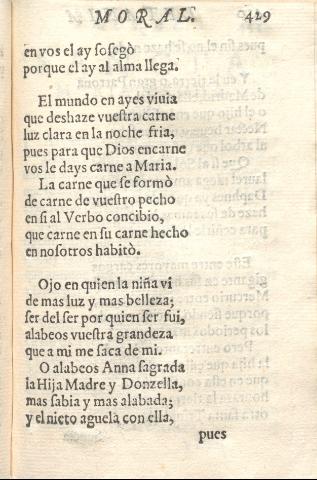 MORAL. 429
en vos el ay sosegò
porque el ay al alma llega.
El mundo en ayes viuia
que deshaze vuestra carne
luz clara en la noche fria,
pues para que Dios encarne
vos le days carne a Maria.
La carne que se formò
de carne de vuestro pecho
en si al Verbo concibio,
que carne en su carne hecho
en nosotros habitò.
Ojo en quien la niña vi
de mas luz y mas belleza;
ser del ser por quien ser fui,
alabeos vuestra grandeza
que a mi me saca de mi.
O alabeos Anna sagrada
la Hija Madre y Donzella,
mas sabia y mas alabada;
y el nieto aguela con ella,
pues